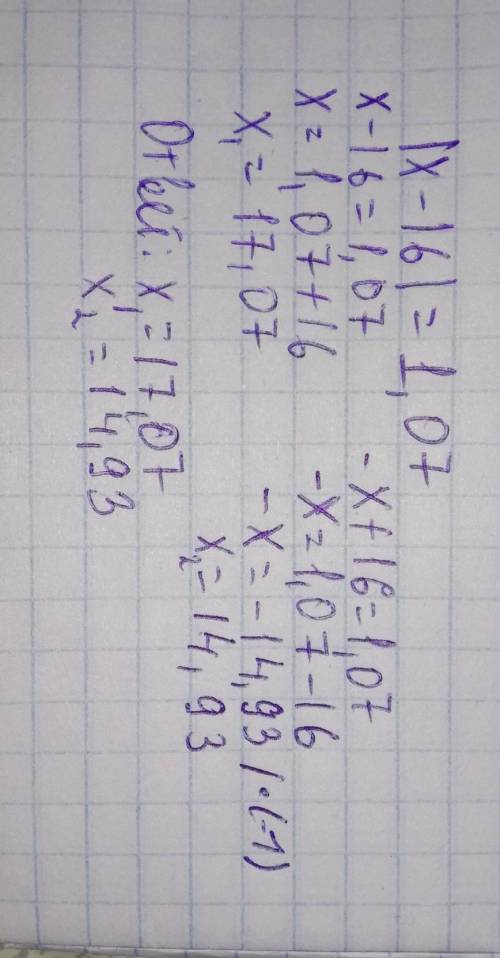 |x-16|=1,07
x-16=1,07
x=1,07+16
x₁=17,07
-x+16=1,07
-x=1,07-16
-x=-14,93 /·(-1)
x₂=14,93
Ответ: x₁=17,07
x₂=14,93